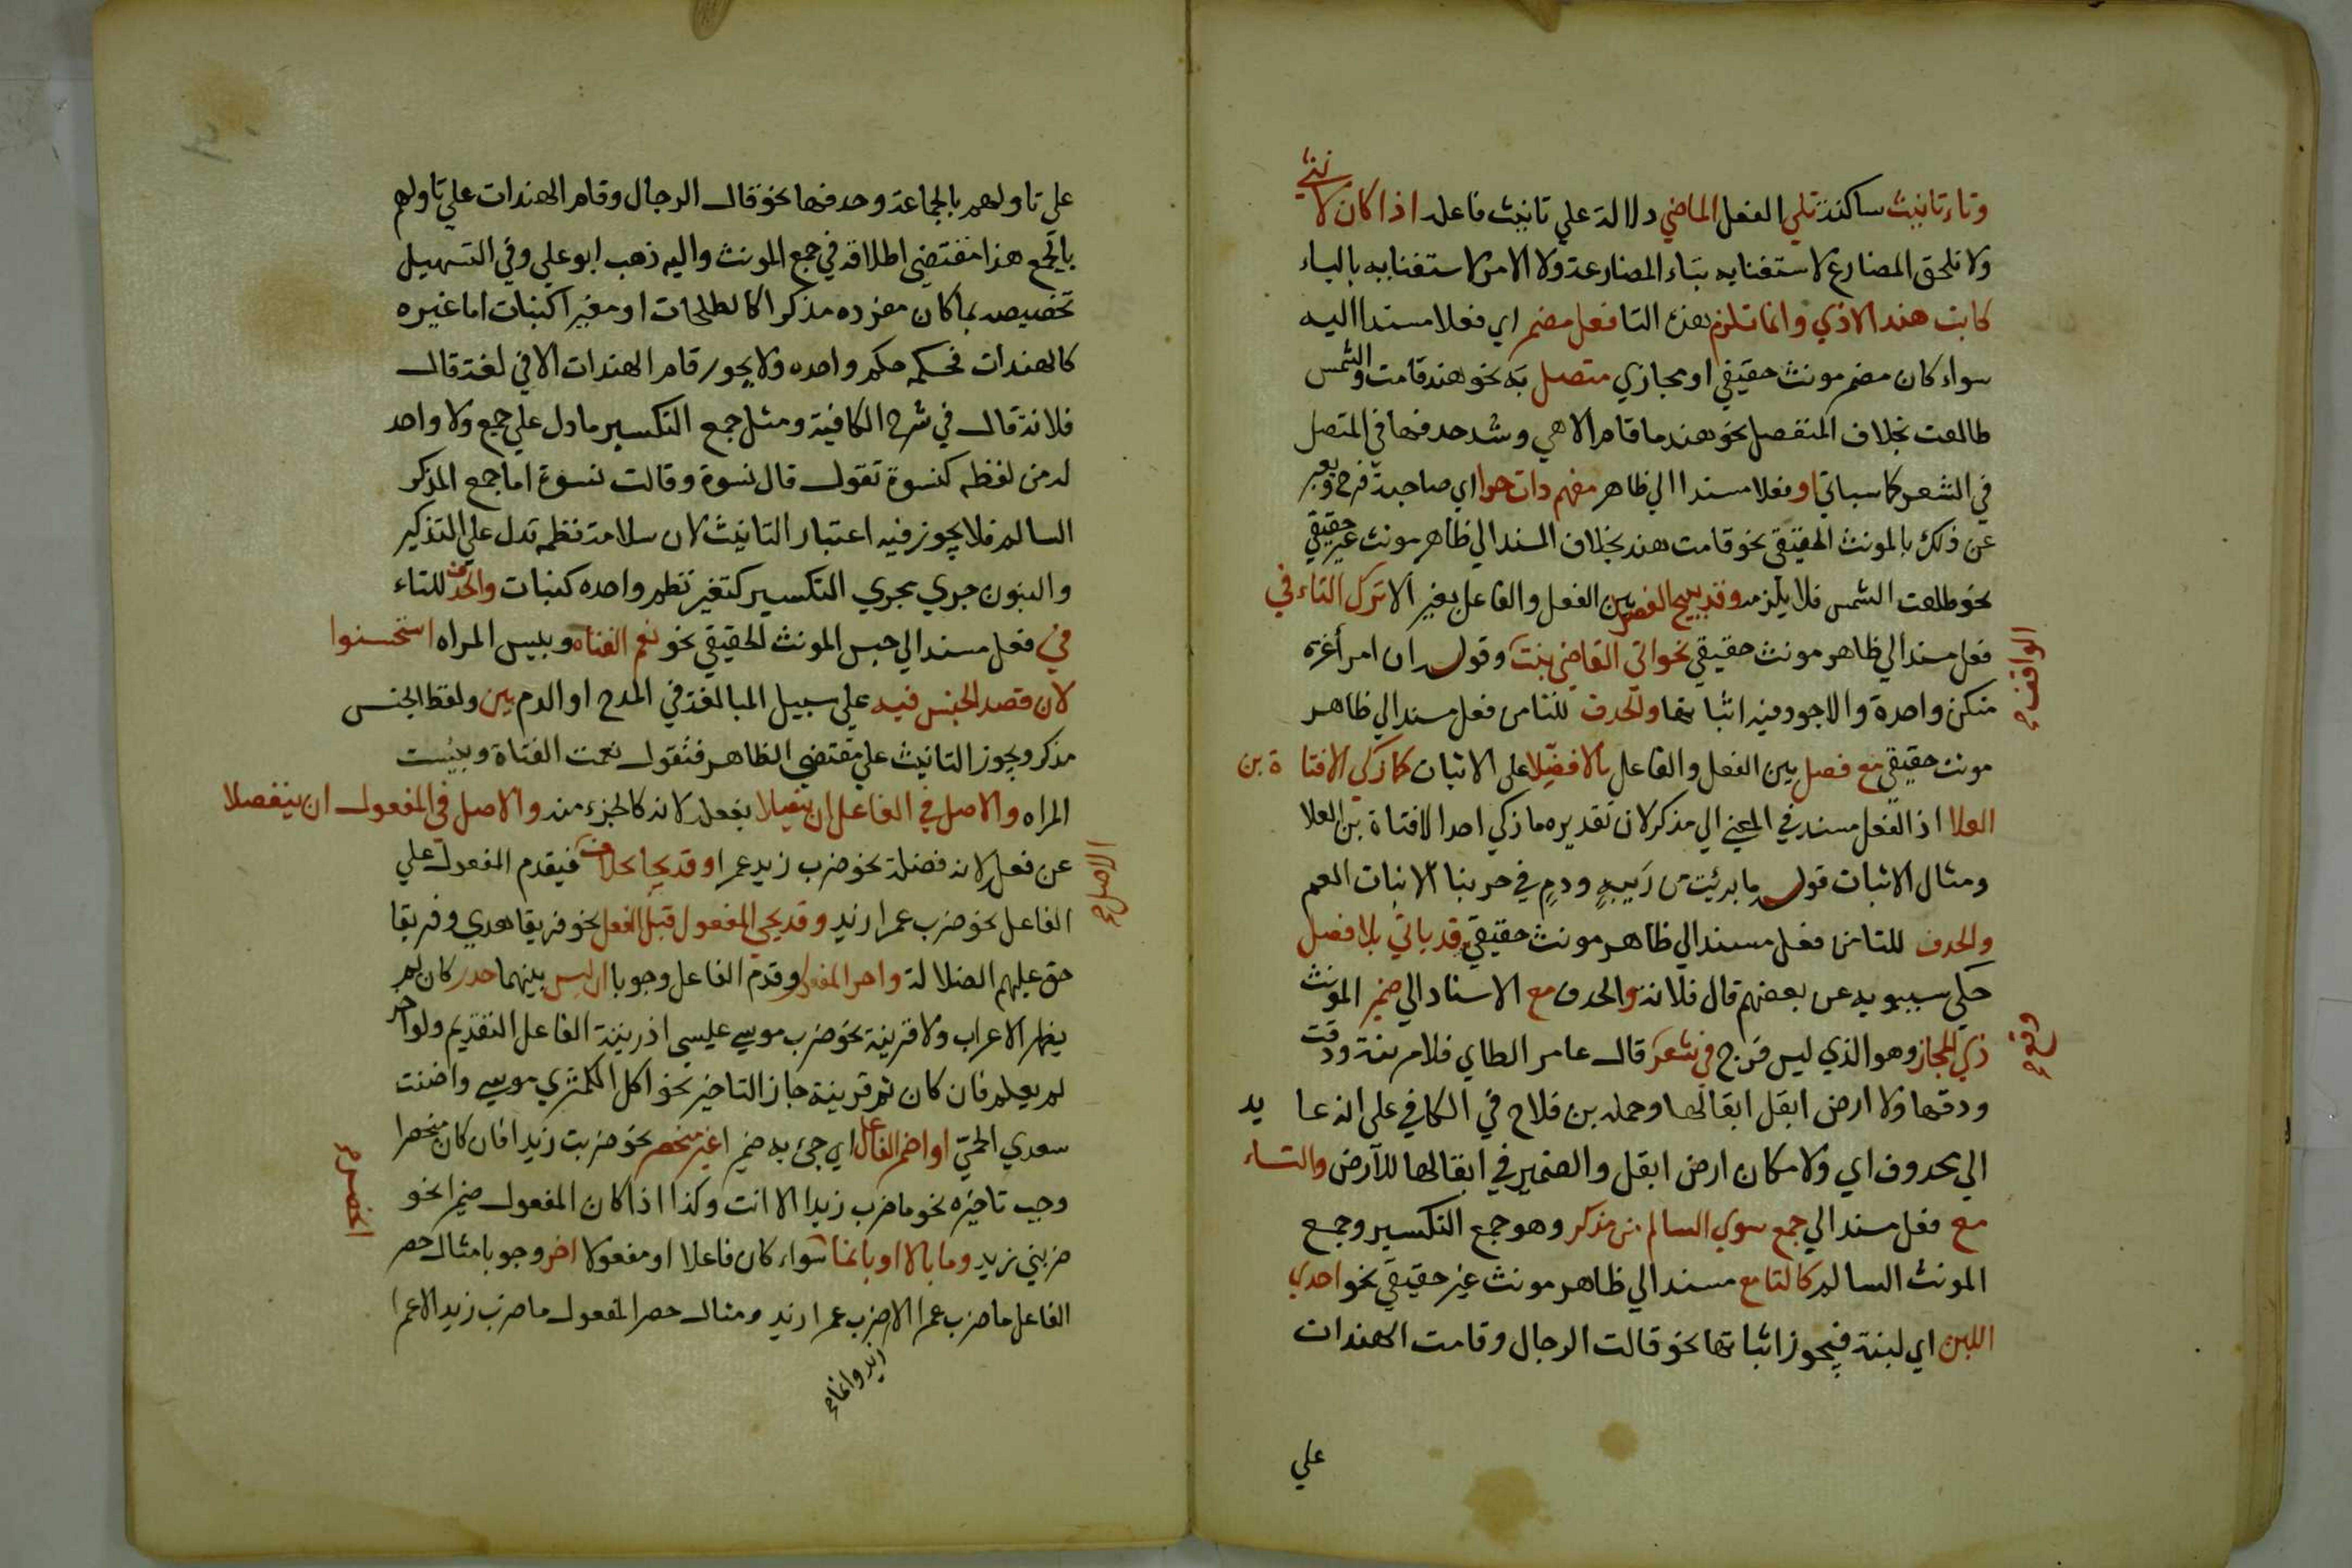 وتاء تانيث ساكنة تلي الفعل الماضي دلالة علي تانيث فاعله اذا كان لانثي
ولا تلحق المضارع لاستغنايه بتاء المضارعة ولا الامر لاستغنايه بالياء
كابت هند الاذي وانما تلزم هذه التا فعل مضمر اي فعلا مسندا اليه
سواء كان مضمر مونث حقيقي او مجازي متصل به نحو هند قامت والشمس
طالعت بخلاف المنفصل نحو هند ما قام الا هي وشد حدفها في المتصل
في الشعر كما سياتي او فعلا مسندا الي ظاهر مفهم دات حرا اي صاحبة فرج ويعبر
عن ذلك بالمونث الحقيقي نحو قامت هند بخلاف المسند الي ظاهر مونث غير حقيقي
نحو طلعت الشمس فلا يلزمه وقد يبيح الفصل بين الفعل والفاعل بغير الا ترك التاء في
فعل مسند الي ظاهر مونث حقيقي نحو اتي القاضي بنت وقوله ان امرأ غره
منكن واحدة والاجود فيه اثباتها والحدف للتا من فعل مسند الي ظاهر
مونث حقيقي مع فصل بين الفعل والفاعل بالا فضلا علي الاثبات كما زكي الا فتاة بن
العلا اذ الفعل مسند في المعني الي مذكر لان تقديره ما زكي احد الا فتاة بن العلا
ومثال الاثبات قوله ما برئت من ريبة ودم في حربنا الا بنات العم
والحدف للتا من فعل مسند الي ظاهر مونث حقيقي قد ياتي بلا فصل
حكي سيبويه عن بعضهم قال فلانة والحدف مع الاسناد الي ضمير المونث
ذي المجاز وهو الذي ليس فرج في شعر قال عامر الطاي فلا مزنة ودقت
ودقها ولا ارض ابقل ابقالها وحمله بن فلاح في الكافي علي انه عايد
الي محدوف اي ولا مكان ارض ابقل والضمير في ابقالها للارض والتاء
مع فعل مسند الي جمع سوي السالم من مذكر وهو جمع التكسير وجمع
المونث السالم كالتا مع مسند الي ظاهر مونث غير حقيقي نحو احدي
اللبن اي لبنة فيجوز اثباتها نحو قالت الرجال وقامت الهندات
علي
علي تاولهم بالجماعة وحدفها نحو قال الرجال وقام الهندات علي تاولهم
بالجمع هذا مقتضي اطلاقه في جمع المونث واليه ذهب ابو علي وفي التسهيل
تخصيصه بما كان مفرده مذكرا كالطلحات او مغيرا كبنات اما غيره
كالهندات فحكمه حكم واحده ولا يجوز قام الهندات الا في لغة قال
فلانة قال في شرح الكافية ومثل جمع التكسير ما دل علي جمع ولا واحد
له من لفظه كنسوة تقول قال نسوة وقالت نسوة اما جمع المذكر
السالم فلا يجوز فيه اعتبار التانيث لان سلامة نظمه تدل علي التذكير
والبنون جري مجري التكسير كتغير نظم واحده كبنات والحدف للتاء
في فعل مسند الي جنس المونث الحقيقي نحو نعم الفتاه وبيس المراه استحسنوا
لان قصد الجنس فيه علي سبيل المبالغة في المدح او الدم بين ولفظ الجنس
مذكر ويجوز التانيث علي مقتضي الظاهر فتقول نعمت الفتاة وبئست
المراه والاصل في الفاعل ان يتصلا بفعله لانه كالجزء منه والاصل في المفعول ان ينفصلا
عن فعله لانه فضلة نحو ضرب زيد عمرا وقد يجا بخلاف فيقدم المفعول علي
الفاعل نحو ضرب عمرا زيد وقد يجي المفعول قبل الفعل نحو فريقا هدي وفريقا
حق عليهم الضلالة واخر المفعول وقدم الفاعل وجوبا ان لبس بينهما حدر كان لم
يظهر الاعراب ولا قرينة نحو ضرب موسي عيسي اذ رتبة الفاعل التقديم ولو اخر
لم يعلم فان كان ثم قرينة جاز التاخير نحو اكل الكمثري موسي واضنت
سعدي الحمي او اضمر الفاعل اي جئ به ضميرا غير منحصر نحو ضربت زيدا فان كان منحصرا
وجب تاخيره نحو ما ضرب زيدا الا انت وكذا اذا كان المفعول ضميرا نحو
ضربني زيد وما بالا او بانما سواء كان فاعلا او مفعولا اخر وجوبا مثال حصر
الفاعل ما ضرب عمرا الا ضرب عمرا زيد ومثال حصر المفعول ما ضرب زيد الا عمرا
زيد وانما
الاصل
انحصر